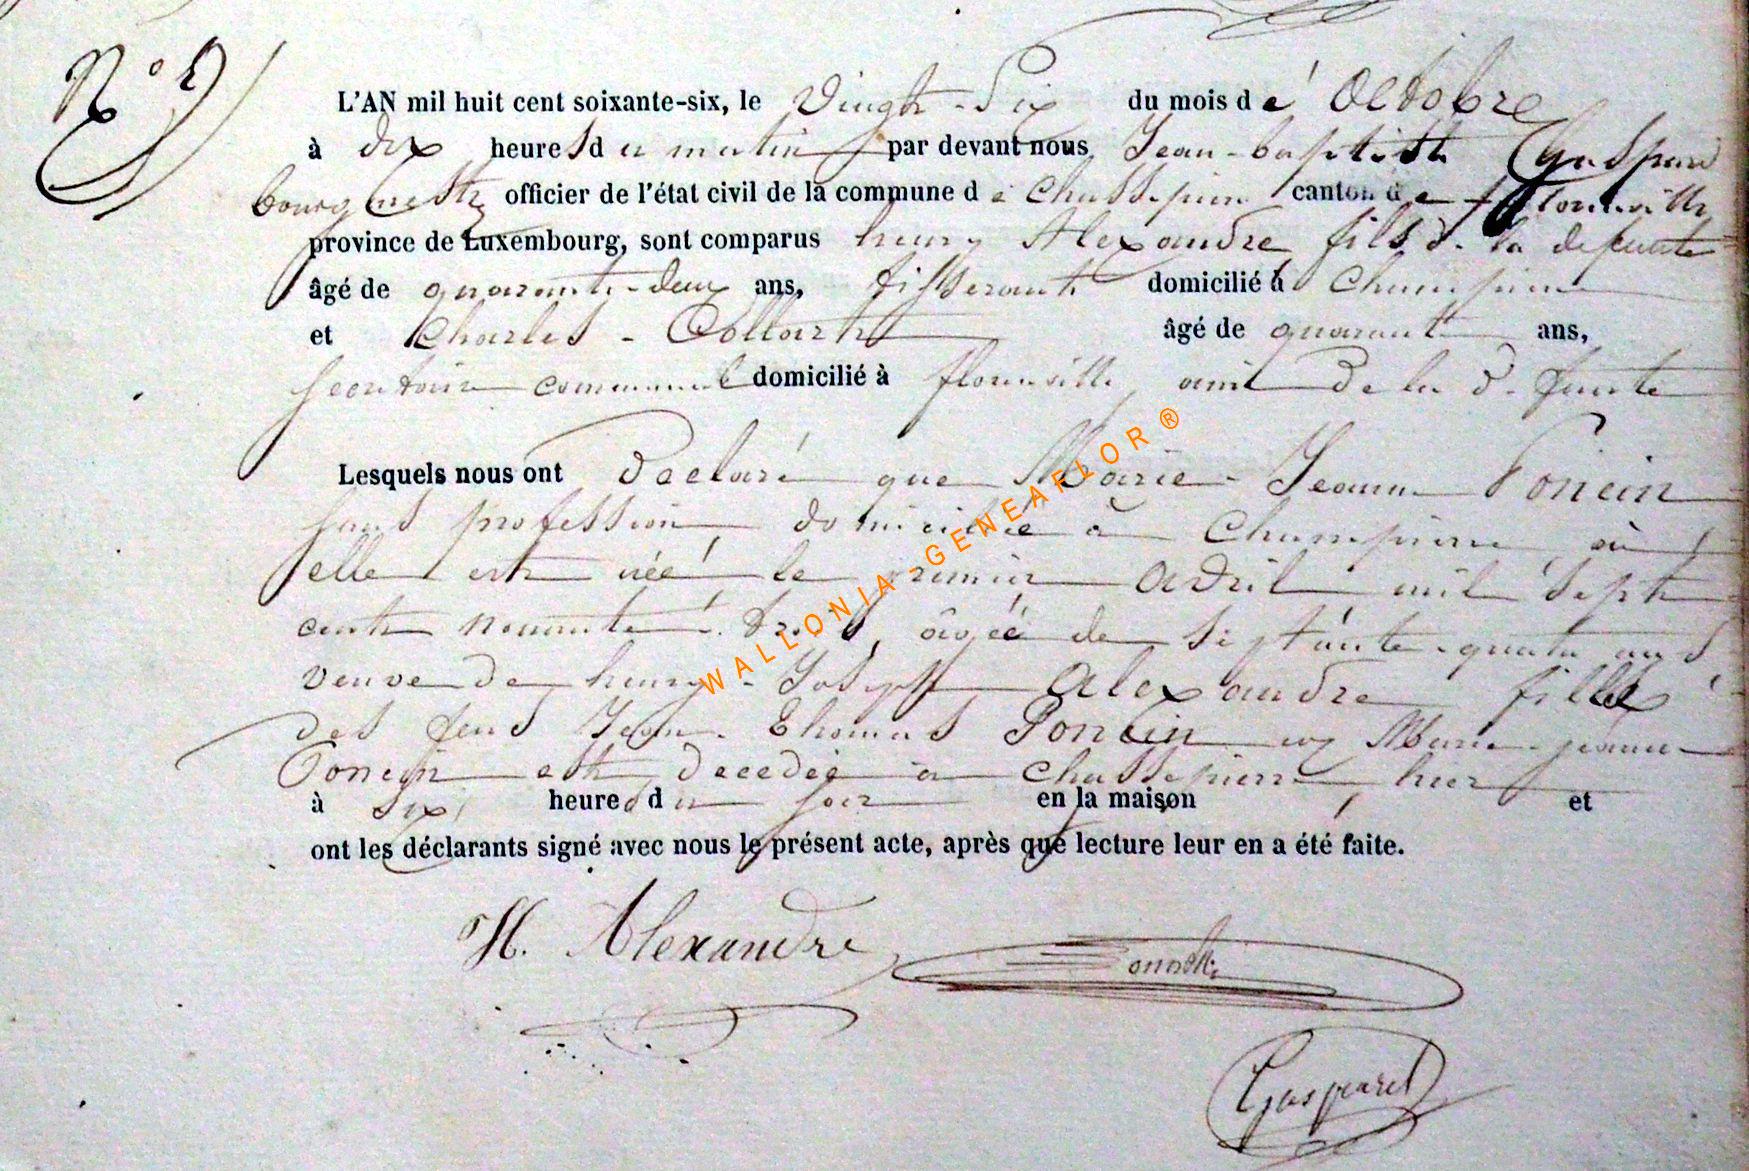 N° 9
L'AN mil huit cent soixante-six, le Vingt-Six du mois de Octobre
à dix heures du matin par devant nous Jean-baptiste Gaspard
bourgmestre officier de l'état civil de la commune de Chassepierre canton de florenville
province de Luxembourg, sont comparus henry Alexandre, fils de la defunte
âgé de quarante-deux ans, tisserant domicilié à Chassepierre
et Charles - Collart âgé de quarante ans,
secretaire communal domicilié à florenville, ami de la defunte
Lesquels nous ont declaré que Marie-Jeanne Poncin
sans profession domiciliée à Chassepierre, où
elle est née le premier Avril mil sept
cent nonante trois, âgée de septante-quatre ans
veuve de henry-Joseph Alexandre fille
des feus Jean-Thomas Poncin et Marie-jeanne
Poncin est decedée à Chassepierre, hier
à Six heures du soir en la maison et
ont les déclarants signé avec nous le présent acte, après que lecture leur en a été faite.
H. Alexandre
Gaspard
WALLONIA-GENEAFLOR ®